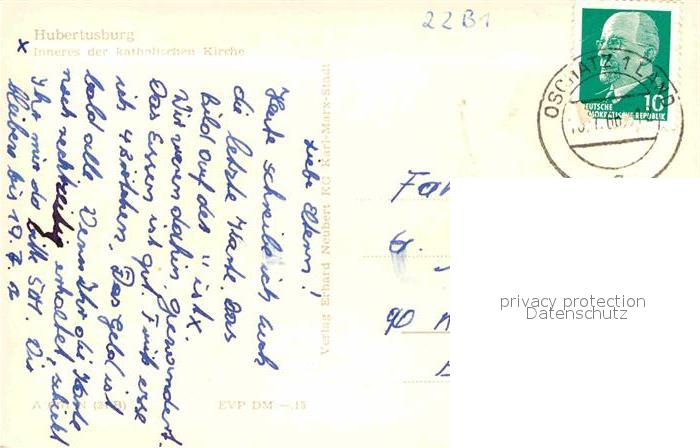 22B1
Hubertusburg
Inneres der katholischen Kirche
x
Liebe Eltern!
Heute schreibe ich euch
die letzte Karte. Das
Bild auf der " ist x.
Wir waren dahin gewandert.
Das Essen ist gut. Früh esse
ich 4 Brötchen. Das Geld ist
bald alle. Wenn ihr die Karte
noch rechtzeitig erhaltet, schickt
Ihr mir da bitte 5 DM. Wir
bleiben bis 19.7.
Verlag Erhard Neubert KG Karl-Marx-Stadt
EVP DM -.15
OSCHATZ 1 LAND
10
DEUTSCHE
DEMOKRATISCHE REPUBLIK
Fam
6.
90
privacy protection
Datenschutz